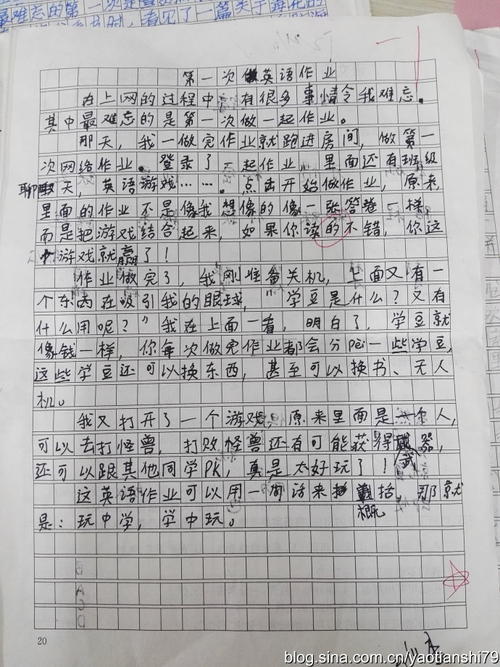 第一次做英语作业
在上网的过程中，有很多事情令我难忘。
其中最难忘的是第一次做一起作业。
那天，我一做完作业就跑进房间，做第一
次网络作业。登录了一起作业，里面还有班级
聊天，英语游戏……。点击开始做作业，原来
里面的作业不是像我想像的像一张答卷一样
而是把游戏结合起来，如果你读的不错，你这
个游戏就赢了！
作业做完了，我刚准备关机，上面又有一
个东西在吸引我的眼球，“学豆是什么？又有
什么用呢？”我在上面一看，明白了，学豆就
像钱一样，你每次做完作业都会分pei一些学豆，
这些学豆还可以换东西，甚至可以换书、无人
机。
我又打开了一个游戏，原来里面是一个人，
可以去打怪兽，打败怪兽还有可能获得武器，
还可以跟其他同学PK，真是太好玩了！
这英语作业可以用一句话来概括，那就
是：玩中学，学中玩。
20
blog.sina.com.cn/yaotianshi79